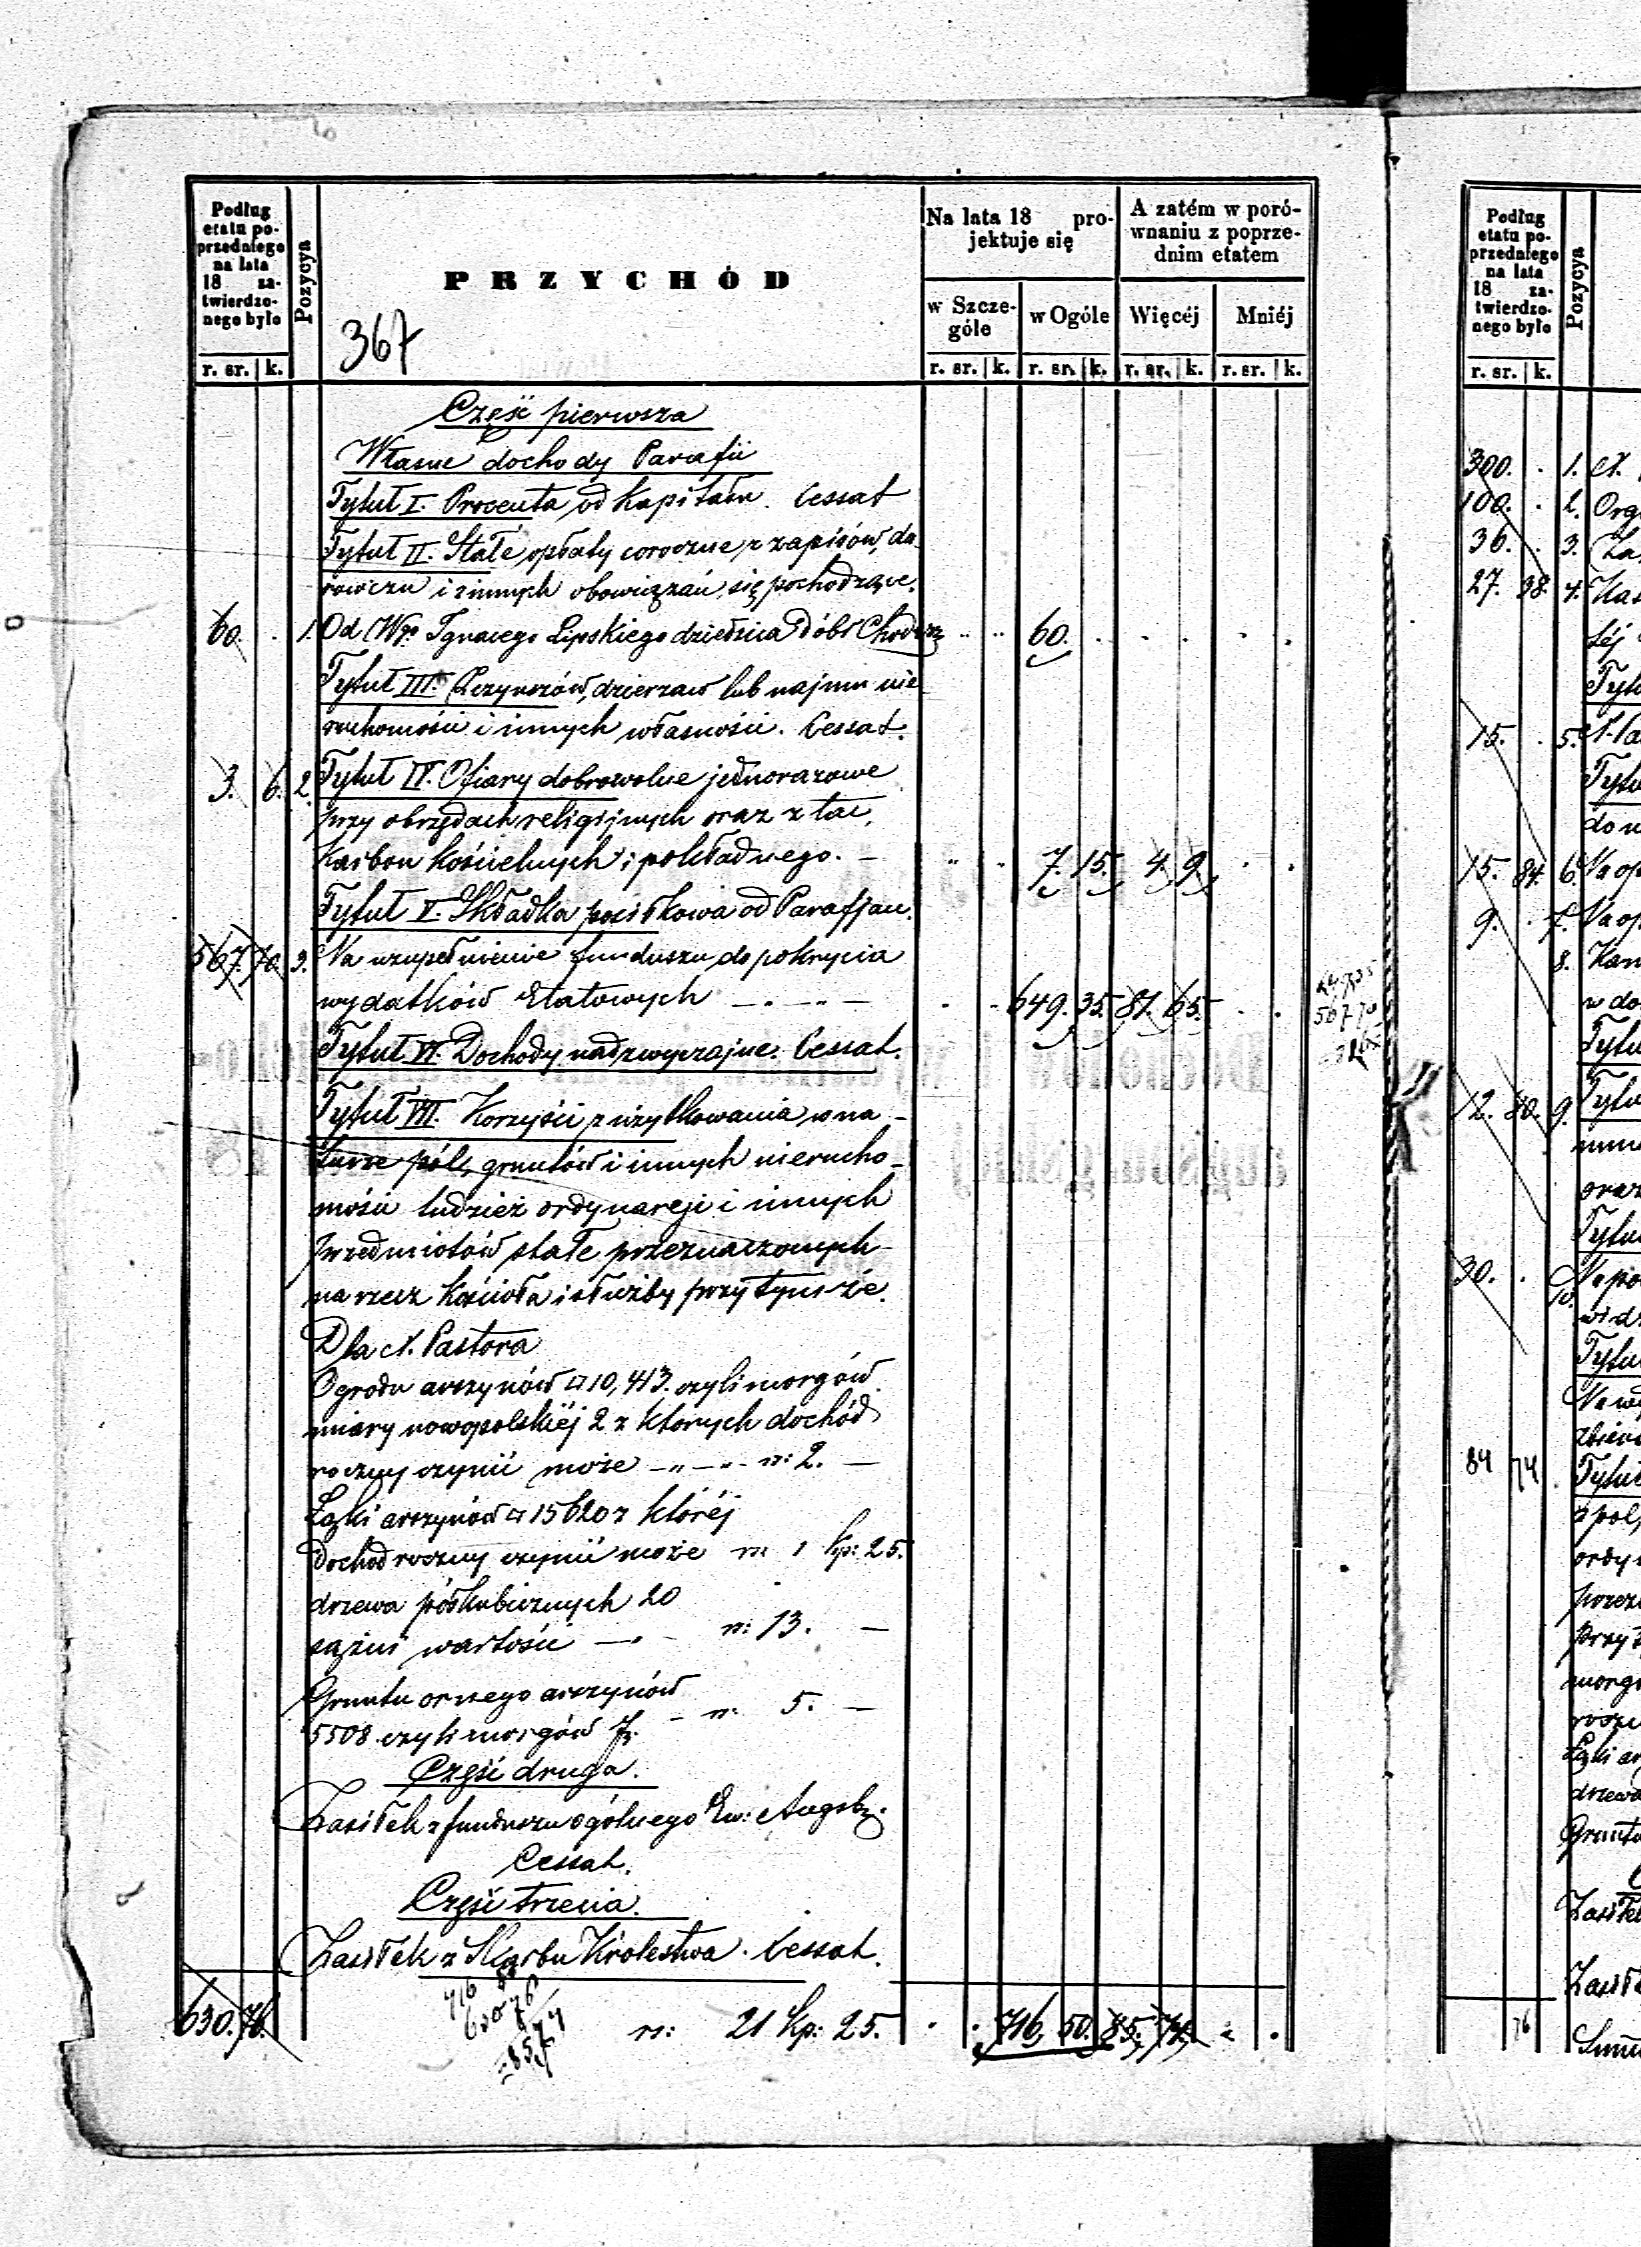 Podług etatu poprzedniego na lata 18 zatwierdzonego było
Pozycya
PRZYCHÓD
Na lata 18 projektuje się
A zatém w porównaniu z poprzednim etatem
w Szczególe
w Ogóle
Więcéj
Mniéj
r. sr. k.
r. sr. k. r. sr. k. r. sr. k. r. sr. k.
367
Część pierwsza
Własne dochody Parafii
Tytuł I. Procenta od Kapitału. Cessat
Tytuł II. Stałe opłaty coroczne z zapisów, da-
rowizn i innych obowiązań się pochodzące.
60. 1. Od Wgo Ignacego Lipskiego dziedzica Dóbr 60.
Tytuł III. Z czynszów, dzierzaw lub najmu nie
ruchomości i innych własności. Cessat.
3. 6. 2. Tytuł IV. Ofiary dobrowolne jednorazowe
przy obrzędach religijnych oraz z tac,
Karbon kościelnych i pokładnego. — 7. 15. 4. 9.
Tytuł V. Składka posiłkowa od Parafjan.
567. 70. 3. Na uzupełnienie funduszu do pokrycia
wydatków etatowych 649. 35. 81. 65.
567 70
Tytuł VI. Dochody nadzwyczajne. Cessat.
Tytuł VII. Korzyści z użytkowania w na-
turze pól, gruntów i innych nierucho-
mości tudzież ordynaryi i innych
przedmiotów stałe przeznaczonych
na rzecz Kościoła i służby przy tymże.
Dla X. Pastora
Ogrodu arszynów □ 10,413. czyli morgów
miary nowopolskiéj 2 z których dochód
roczny czynić może rs: 2. —
Łąki arszynów □ 15620 z któréj
dochod roczny czynić może rs: 1 kp: 25.
drzewa półkubicznych 20
sążni wartości rs: 13. —
Gruntu ornego arszynów
5508 czyli morgów rs: 5. —
Część druga.
Zasiłek z funduszu ogólnego Ew: Augsb:
Cessat.
Część trzecia.
Zasiłek z Skarbu Królestwa. Cessat.
630. 76. rs: 21 kp: 25. 716. 50. 85. 74.
716 50
630 76
85 74
Podług etatu poprzedniego na lata 18 zatwierdzonego było
Pozycya
r. sr. k.
300. 1. X.
100. 2.
36. 3.
27. 38. 4.
15. 5.
15. 84. 6. Na
9. 7. Na
8.
12. 80. 9.
30. 10.
84 74
76